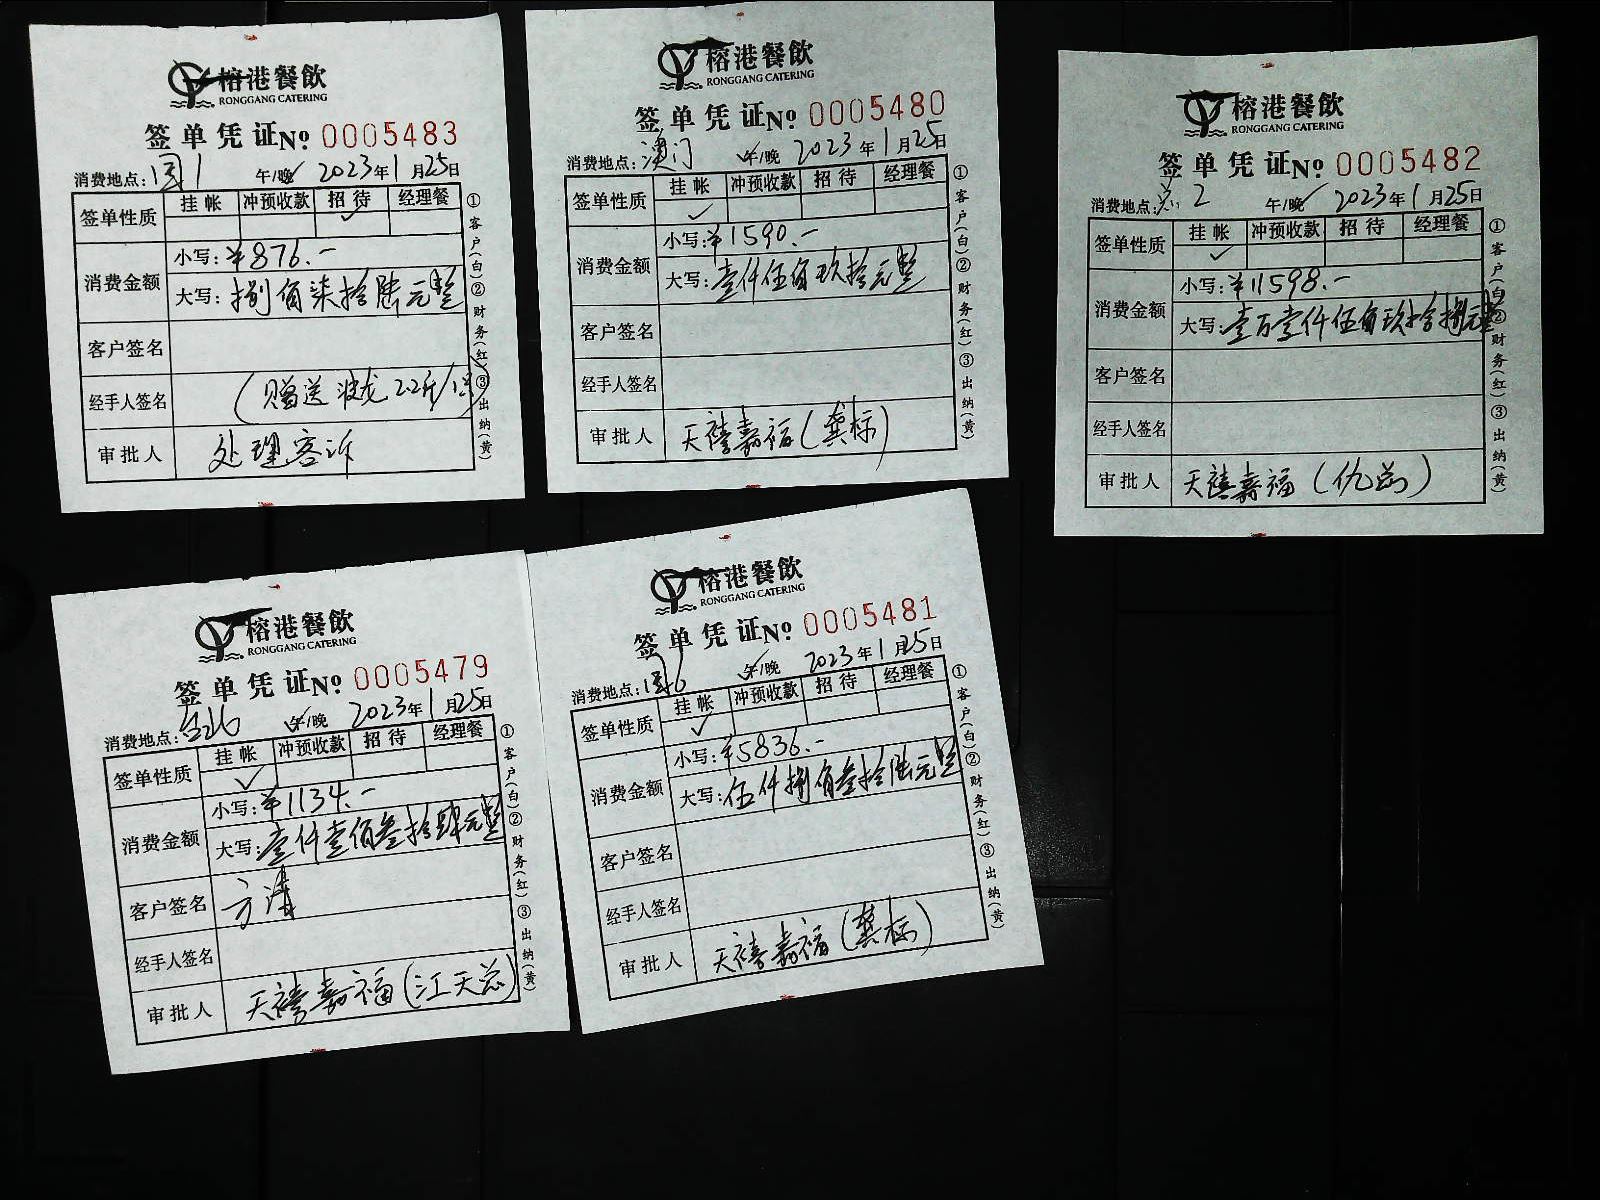 榕港餐飲
RONGGANG CATERING
签单凭证No. 0005483
消费地点: 国1 午/晚✓ 2023年1月25日
签单性质 挂帐 冲预收款 招待 经理餐
✓
消费金额 小写:¥876.-
大写: 捌佰柒拾陆元整
客户签名
经手人签名 (赠送波龙2.2斤/1只)
审批人 处理客诉
①客户(白)②财务(红)③出纳(黄)
榕港餐飲
RONGGANG CATERING
签单凭证No. 0005480
消费地点: 澳门 午✓/晚 2023年1月25日
签单性质 挂帐 冲预收款 招待 经理餐
✓
消费金额 小写:¥1590.-
大写:壹仟伍佰玖拾元整
客户签名
经手人签名
审批人 天禧嘉福(龚标)
①客户(白)②财务(红)③出纳(黄)
榕港餐飲
RONGGANG CATERING
签单凭证No. 0005482
消费地点: 2 午/晚✓ 2023年1月25日
签单性质 挂帐 冲预收款 招待 经理餐
✓
消费金额 小写:¥11598.-
大写:壹万壹仟伍佰玖拾捌元整
客户签名
经手人签名
审批人 天禧嘉福(仇总)
①客户(白)②财务(红)③出纳(黄)
榕港餐飲
RONGGANG CATERING
签单凭证No. 0005479
消费地点: 台北 午✓/晚 2023年1月25日
签单性质 挂帐 冲预收款 招待 经理餐
✓
消费金额 小写:¥1134.-
大写:壹仟壹佰叁拾肆元整
客户签名 方涛
经手人签名
审批人 天禧嘉福(江天总)
①客户(白)②财务(红)③出纳(黄)
榕港餐飲
RONGGANG CATERING
签单凭证No. 0005481
消费地点: 国6 午✓/晚 2023年1月25日
签单性质 挂帐 冲预收款 招待 经理餐
✓
消费金额 小写:¥5836.-
大写:伍仟捌佰叁拾陆元整
客户签名
经手人签名
审批人 天禧嘉福(龚标)
①客户(白)②财务(红)③出纳(黄)